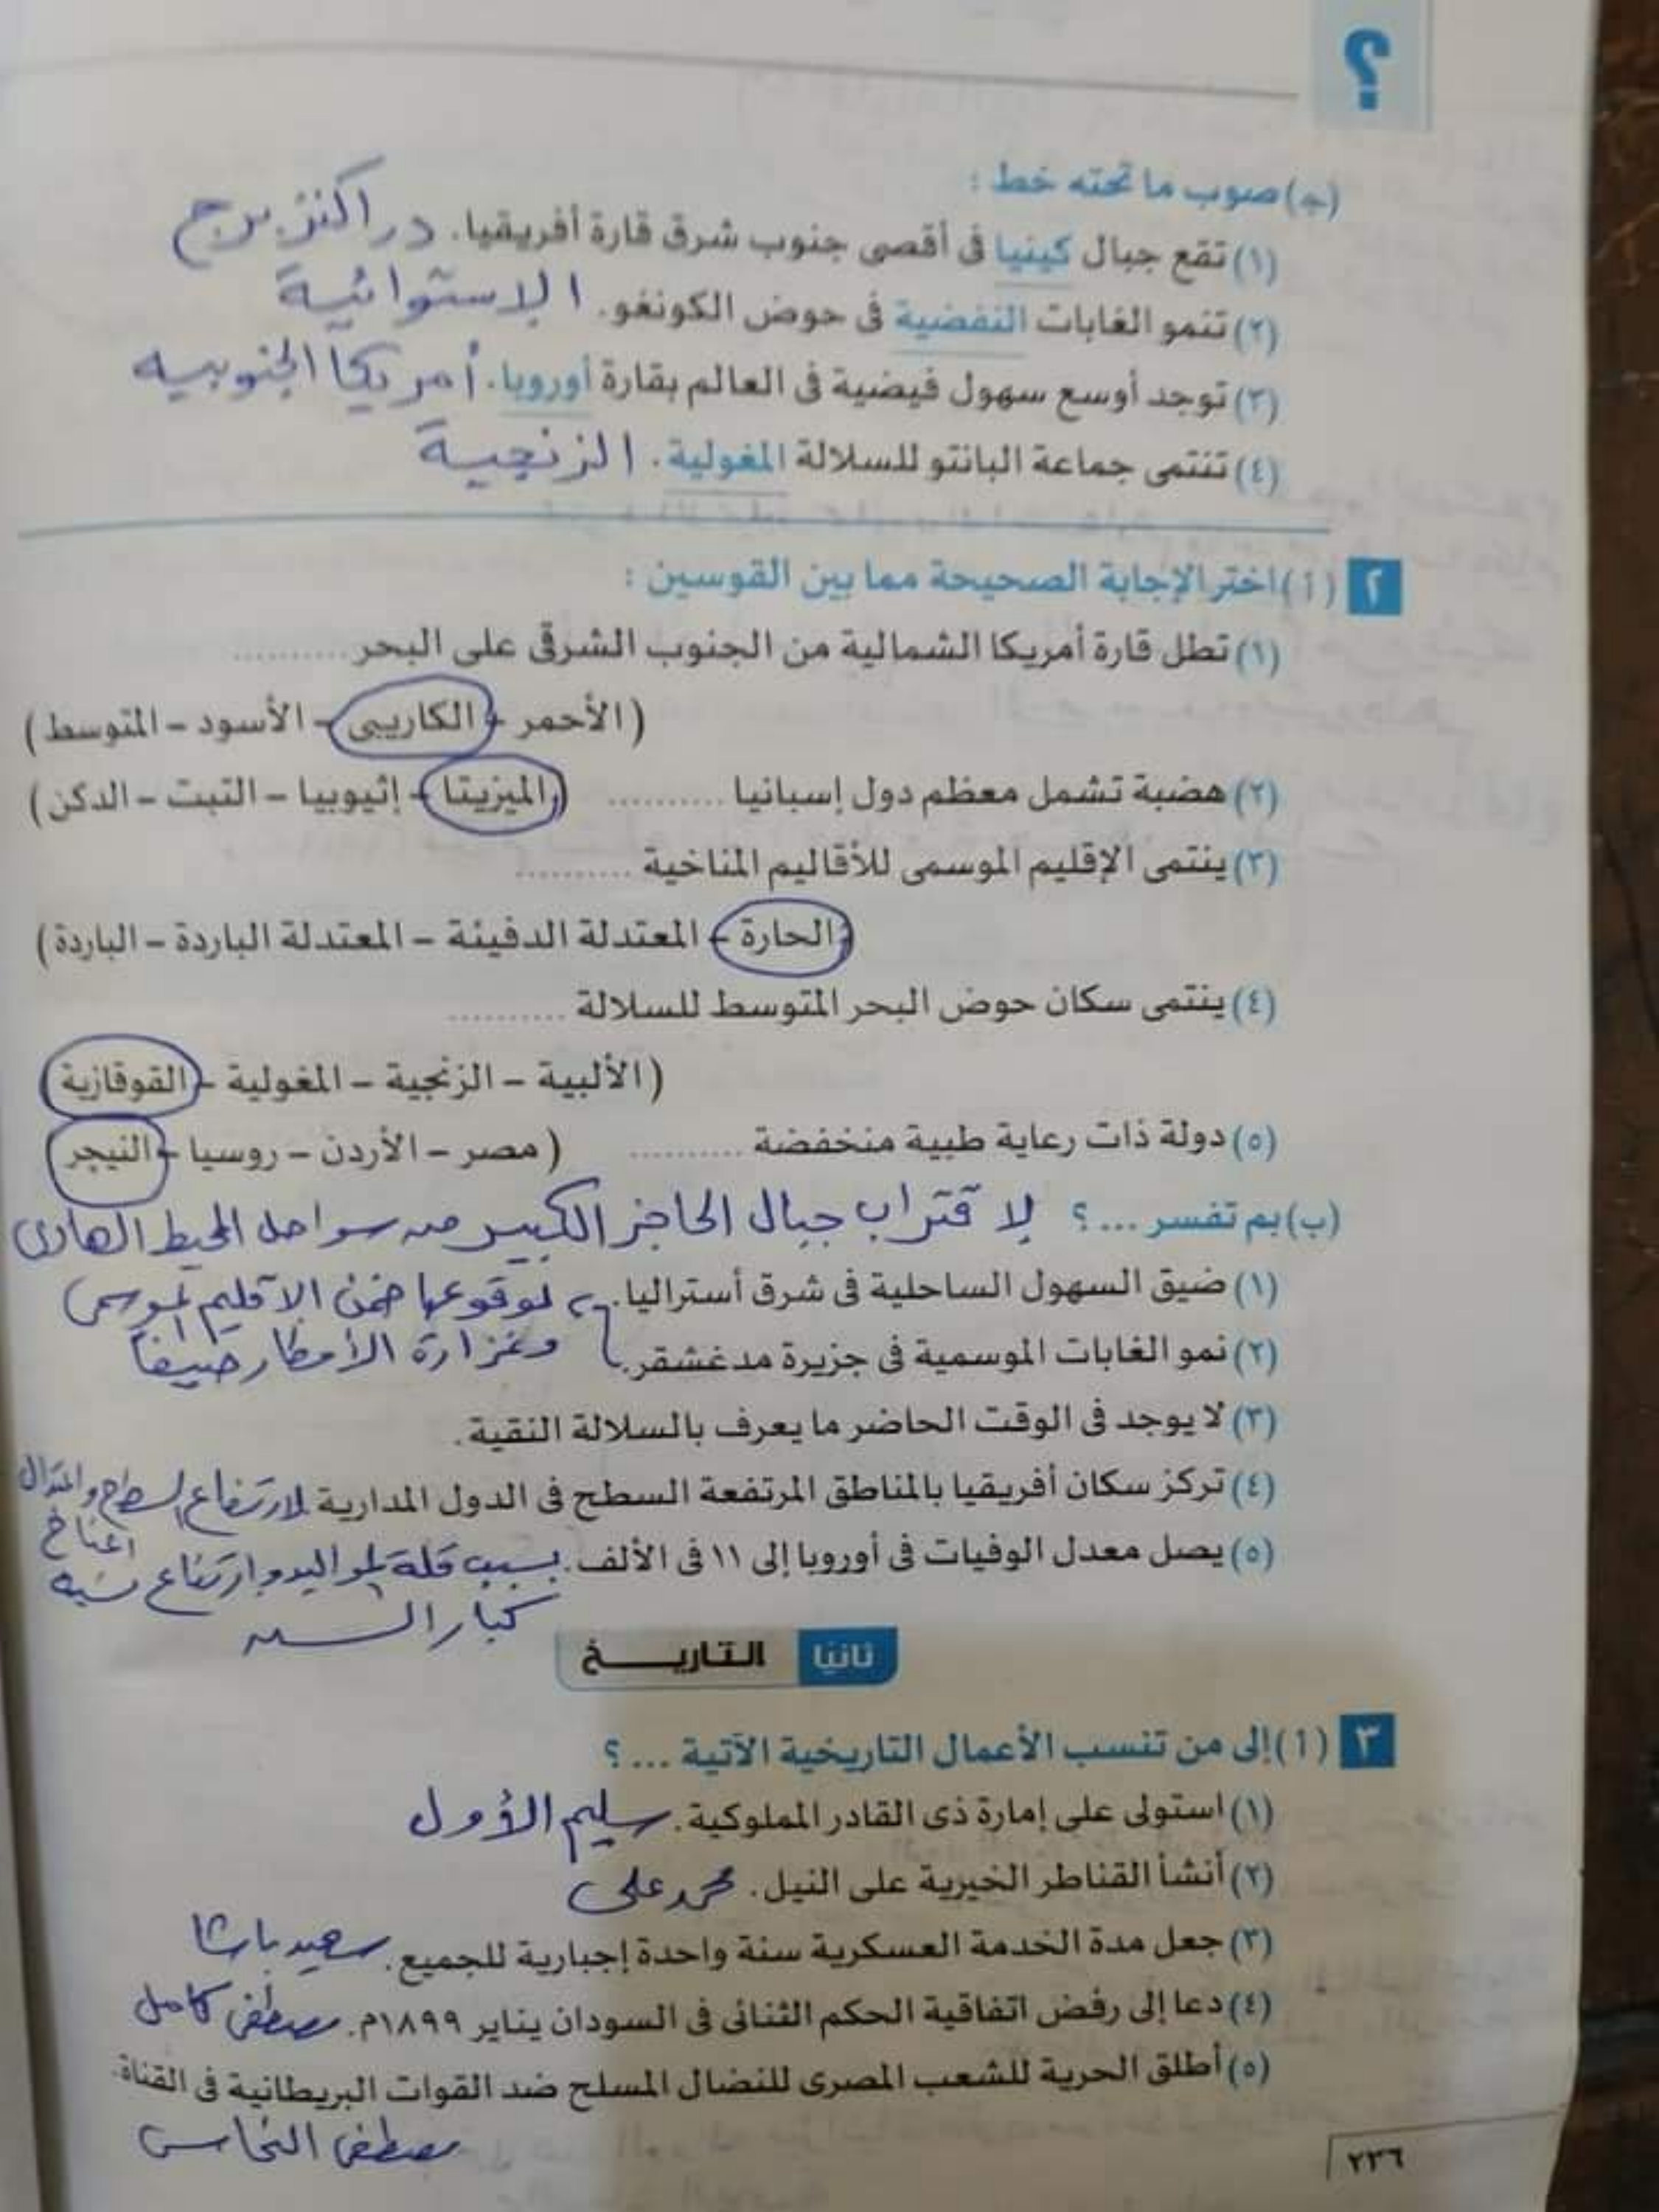 ؟
(جـ) صوب ما تحته خط :
(١) تقع جبال كينيا فى أقصى جنوب شرق قارة أفريقيا. دراكنزبرج
(٢) تنمو الغابات النفضية فى حوض الكونغو. الاستوائية
(٣) توجد أوسع سهول فيضية فى العالم بقارة أوروبا. أمريكا الجنوبيه
(٤) تنتمى جماعة البانتو للسلالة المغولية. الزنجية
٢ (أ) اختر الإجابة الصحيحة مما بين القوسين :
(١) تطل قارة أمريكا الشمالية من الجنوب الشرقى على البحر ..........
(الأحمر - الكاريبى - الأسود - المتوسط)
(٢) هضبة تشمل معظم دول إسبانيا .......... (الميزيتا - إثيوبيا - التبت - الدكن)
(٣) ينتمى الإقليم الموسمى للأقاليم المناخية ..........
(الحارة - المعتدلة الدفيئة - المعتدلة الباردة - الباردة)
(٤) ينتمى سكان حوض البحر المتوسط للسلالة ..........
(الألبية - الزنجية - المغولية - القوقازية)
(٥) دولة ذات رعاية طبية منخفضة .......... (مصر - الأردن - روسيا - النيجر)
(ب) بم تفسر ... ؟ لاقتراب جبال الحاجز الكبير من سواحل المحيط الهادى
(١) ضيق السهول الساحلية فى شرق أستراليا. لوقوعها ضمن الاقليم الموسمى
(٢) نمو الغابات الموسمية فى جزيرة مدغشقر. وغزارة الأمطار صيفا
(٣) لا يوجد فى الوقت الحاضر ما يعرف بالسلالة النقية.
(٤) تركز سكان أفريقيا بالمناطق المرتفعة السطح فى الدول المدارية لارتفاع السطح واعتدال
المناخ
(٥) يصل معدل الوفيات فى أوروبا إلى ١١ فى الألف. بسبب قلة المواليد وارتفاع نسبه
كبار السن
ثانيا التاريخ
٣ (أ) إلى من تنسب الأعمال التاريخية الآتية ... ؟
(١) استولى على إمارة ذى القادر المملوكية. سليم الأول
(٢) أنشأ القناطر الخيرية على النيل. محمد على
(٣) جعل مدة الخدمة العسكرية سنة واحدة إجبارية للجميع. سعيد باشا
(٤) دعا إلى رفض اتفاقية الحكم الثنائى فى السودان يناير ١٨٩٩م. مصطفى كامل
(٥) أطلق الحرية للشعب المصرى للنضال المسلح ضد القوات البريطانية فى القناة.
مصطفى النحاس
٢٣٦